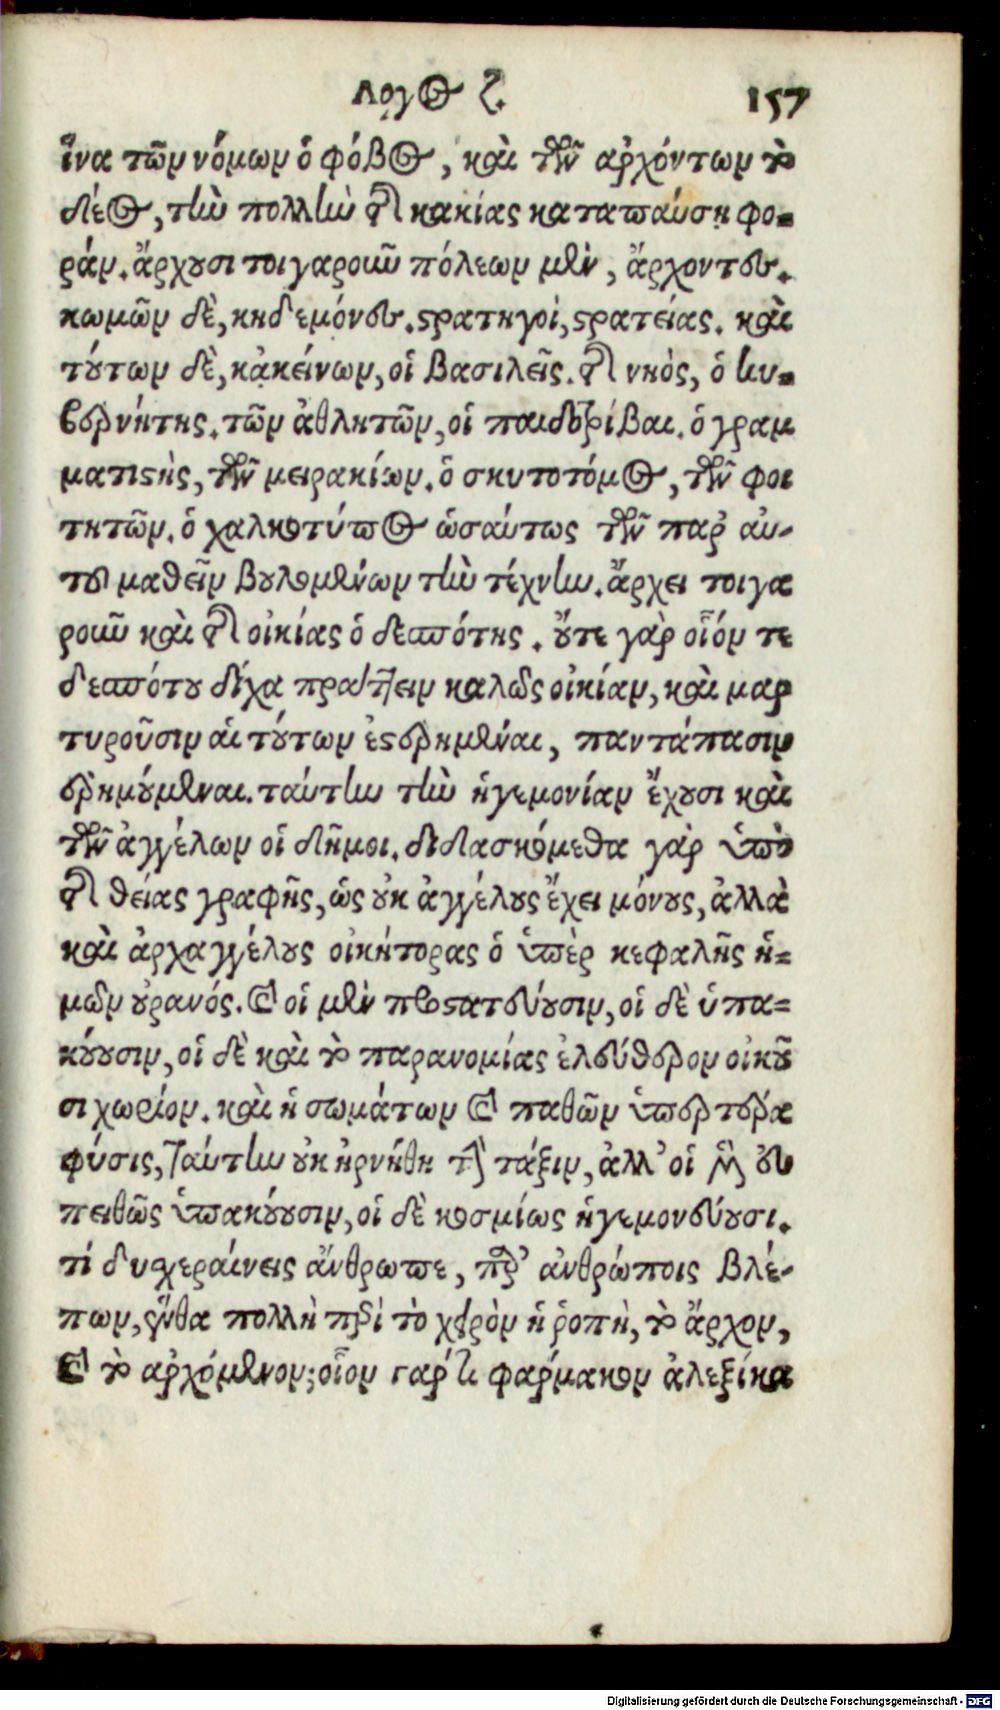 Λόγος ζ. 157
ἵνα τῶν νόμων ὁ φόβος, καὶ τῶν ἀρχόντων τὸ
δέος, τὴν πολλὴν τῆς κακίας καταπαύση φο-
ράν. ἄρχουσι τοιγαροῦν πόλεων μὲν, ἄρχοντες.
κωμῶν δὲ, κηδεμόνες. στρατηγοὶ, στρατείας. καὶ
τούτων δὲ, κἀκείνων, οἱ βασιλεῖς. τῆς νηὸς, ὁ κυ-
βερνήτης. τῶν ἀθλητῶν, οἱ παιδοτρίβαι. ὁ γραμ
ματιστὴς, τῶν μειρακίων. ὁ σκυτοτόμος, τῶν φοι
τητῶν. ὁ χαλκοτύπος ὡσαύτως τῶν παρ αὐ-
τοῦ μαθεῖν βουλομένων τὴν τέχνην. ἄρχει τοιγα
ροῦν καὶ τῆς οἰκίας ὁ δεσπότης. οὔτε γὰρ οἷόν τε
δεσπότου δίχα πράττειν καλῶς οἰκίαν, καὶ μαρ
τυροῦσιν αἱ τούτων ἐστερημέναι, παντάπασιν
ἐρημούμεναι. ταύτην τὴν ἡγεμονίαν ἔχουσι καὶ
τῶν ἀγγέλων οἱ δῆμοι. διδασκόμεθα γὰρ ὑπὸ
τῆς θείας γραφῆς, ὡς οὐκ ἀγγέλους ἔχει μόνους, ἀλλὰ
καὶ ἀρχαγγέλους οἰκήτορας ὁ ὑπὲρ κεφαλῆς ἡ-
μῶν οὐρανός. καὶ οἱ μὲν προστατεύουσιν, οἱ δὲ ὑπα-
κούουσιν, οἱ δὲ καὶ τὸ παρανομίας ἐλεύθερον οἰκοῦ
σι χωρίον. καὶ ἡ σωμάτων καὶ παθῶν ὑπερτέρα
φύσις, ταύτην οὐκ ἠρνήθη τὴν τάξιν, ἀλλ' οἱ μὲν εὐ
πειθῶς ὑπακούουσιν, οἱ δὲ κοσμίως ἡγεμονεύουσι.
τί δυχεραίνεις ἄνθρωπε, παρ' ἀνθρώποις βλέ-
πων, ἔνθα πολλὴ περὶ τὸ χεῖρον ἡ ῥοπὴ, τὸ ἄρχον,
καὶ τὸ ἀρχόμενον; οἷον γάρ τι φάρμακον ἀλεξίκα
Digitalisierung gefördert durch die Deutsche Forschungsgemeinschaft - DFG